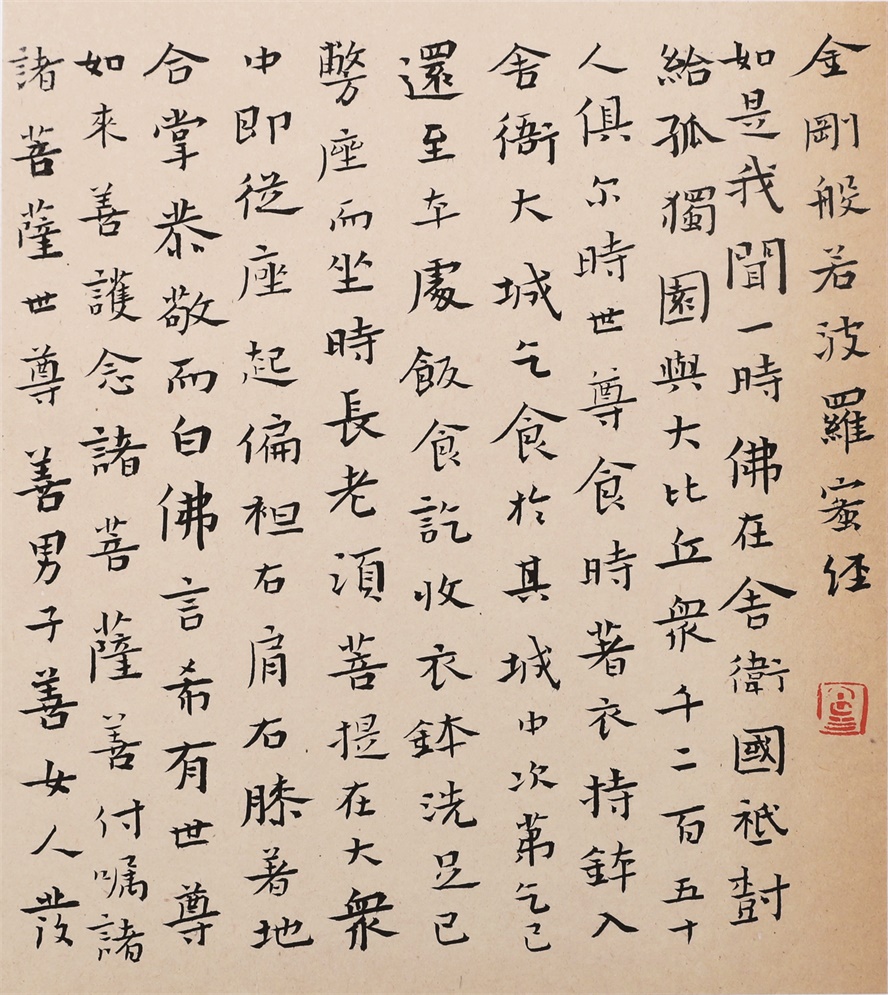 金剛般若波羅蜜經
如是我聞一時佛在舍衛國祗樹
給孤獨園與大比丘衆千二百五十
人俱尔時世尊食時著衣持鉢入
舍衛大城乞食於其城中次第乞已
還至本處飯食訖收衣鉢洗足已
敷座而坐時長老須菩提在大衆
中即從座起偏袒右肩右膝著地
合掌恭敬而白佛言希有世尊
如來善護念諸菩薩善付嘱諸
諸菩薩世尊善男子善女人發